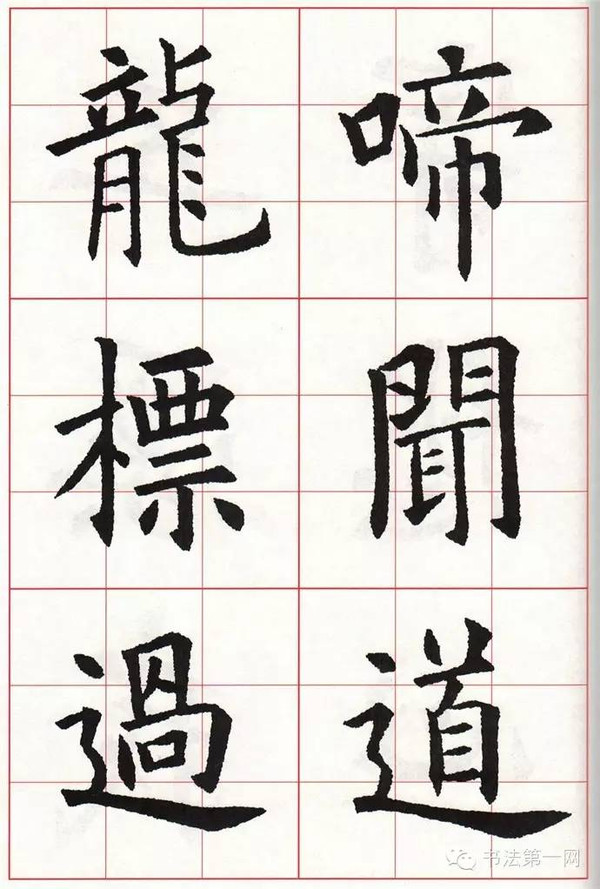 啼聞道
龍標過
书法第一网